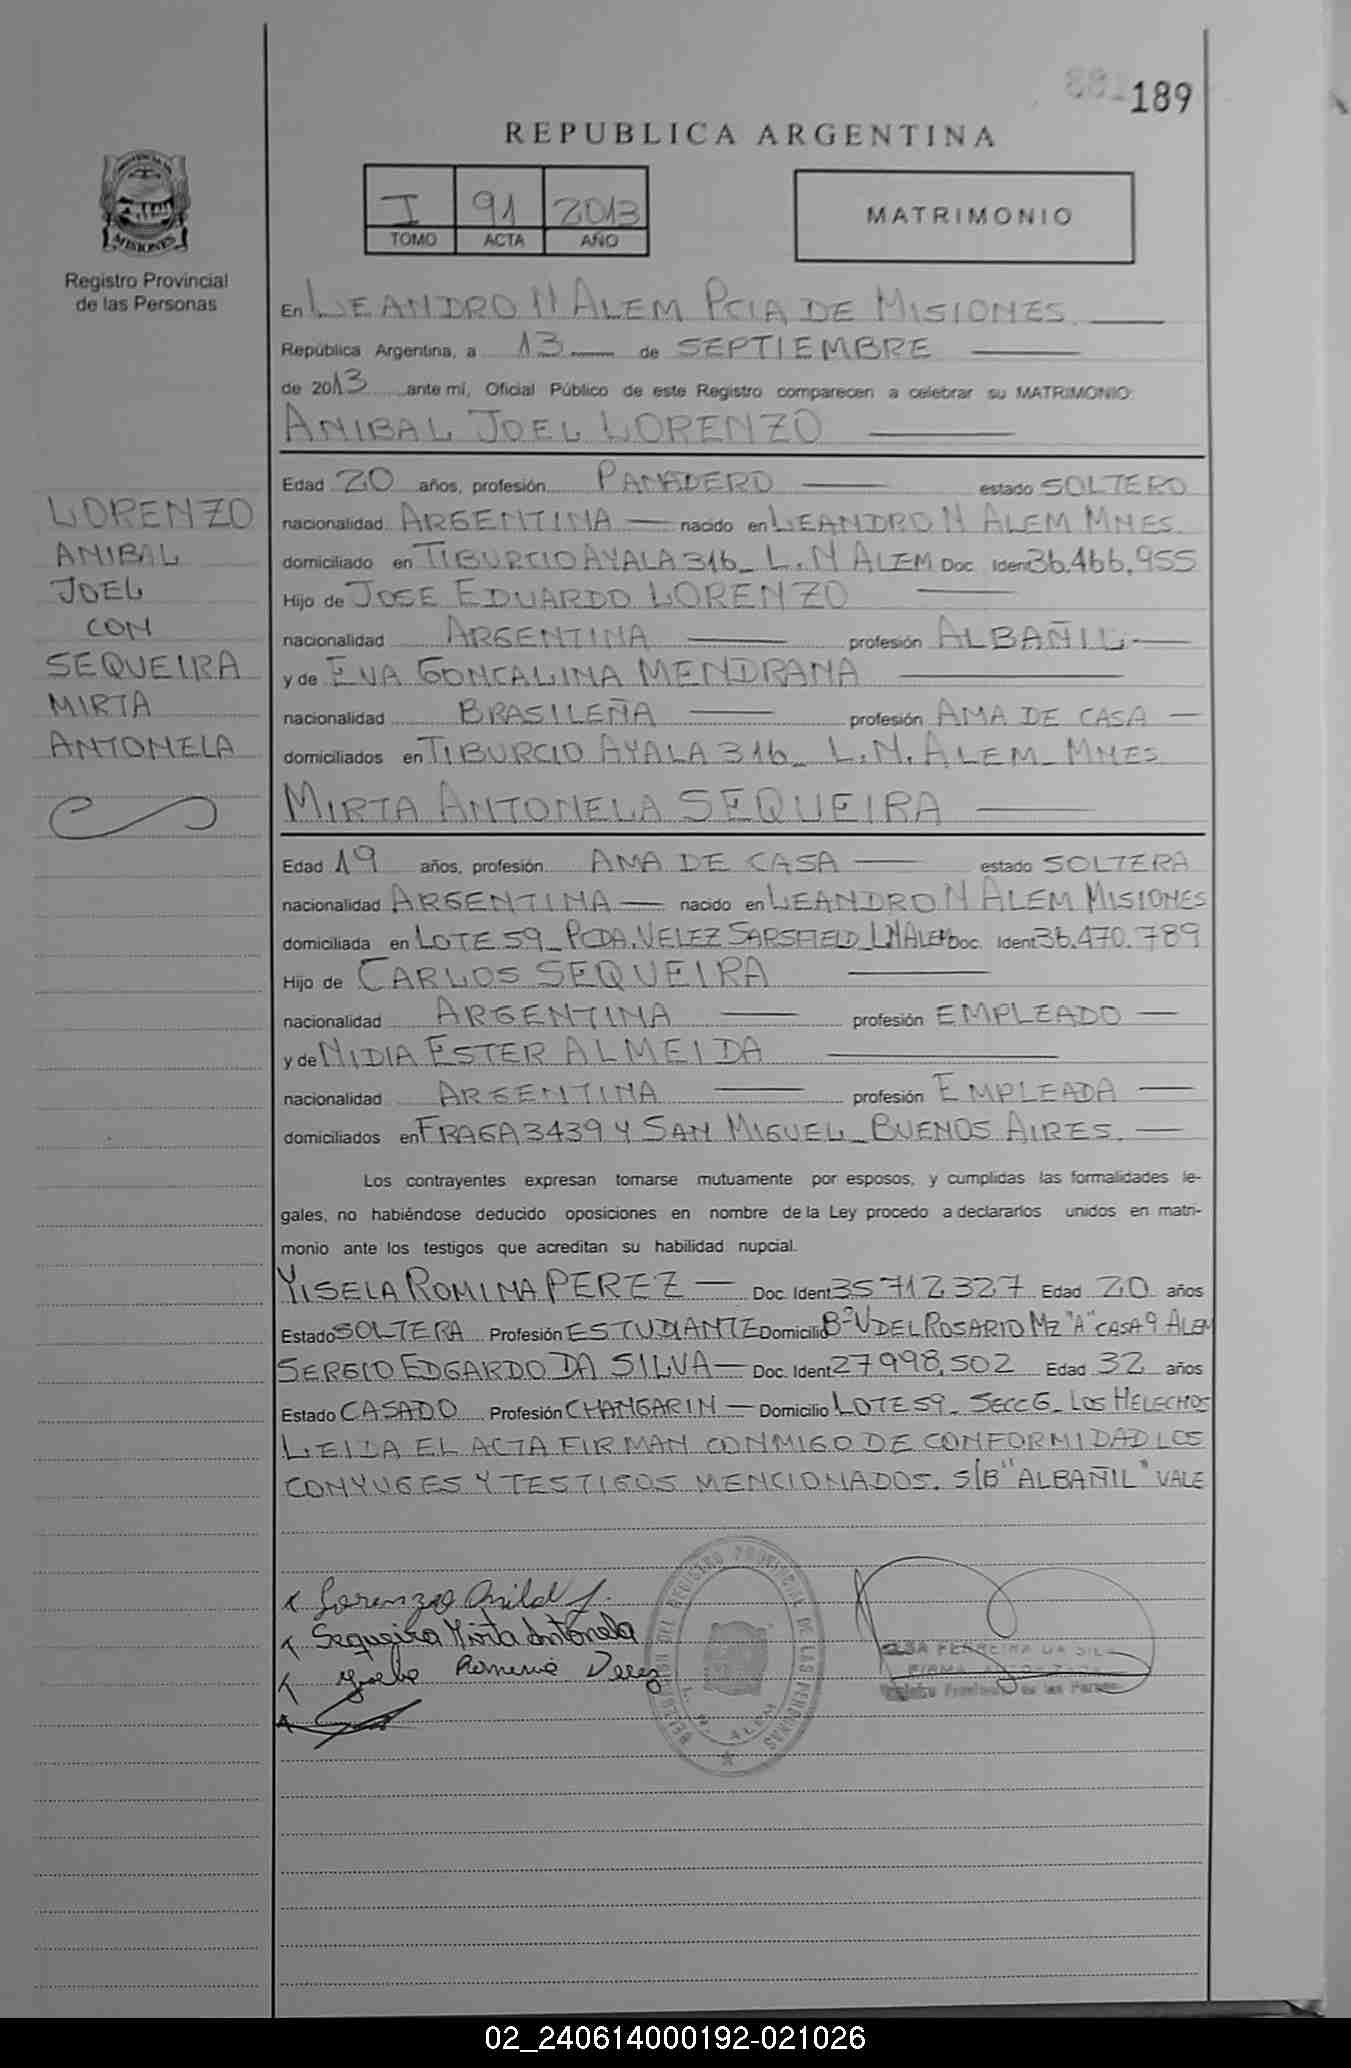 189
REPUBLICA ARGENTINA
I 91 2013
TOMO ACTA AÑO
MATRIMONIO
MISIONES
Registro Provincial
de las Personas
En LEANDRO N ALEM PCIA DE MISIONES
República Argentina, a 13 de SEPTIEMBRE
de 2013 ante mí, Oficial Público de este Registro comparecen a celebrar su MATRIMONIO:
ANIBAL JOEL LORENZO
Edad 20 años, profesión PANADERO estado SOLTERO
nacionalidad ARGENTINA nacido en LEANDRO N ALEM MNES.
domiciliado en TIBURCIO AYALA 316_ L.N ALEM Doc. Ident 36.466.955
Hijo de JOSE EDUARDO LORENZO
nacionalidad ARGENTINA profesión ALBAÑIL
y de EVA GONCALINA MENDRANA
nacionalidad BRASILEÑA profesión AMA DE CASA
domiciliados en TIBURCIO AYALA 316_ L.N. ALEM_ MNES
MIRTA ANTONELA SEQUEIRA
Edad 19 años, profesión AMA DE CASA estado SOLTERA
nacionalidad ARGENTINA nacido en LEANDRO N ALEM MISIONES
domiciliada en LOTE 59_ PCDA. VELEZ SARSFIELD_ LNALEM Doc. Ident 36.470.789
Hijo de CARLOS SEQUEIRA
nacionalidad ARGENTINA profesión EMPLEADO
y de NIDIA ESTER ALMEIDA
nacionalidad ARGENTINA profesión EMPLEADA
domiciliados en FRAGA 3439 Y SAN MIGUEL_ BUENOS AIRES.
Los contrayentes expresan tomarse mutuamente por esposos, y cumplidas las formalidades le-
gales, no habiéndose deducido oposiciones en nombre de la Ley procedo a declararlos unidos en matri-
monio ante los testigos que acreditan su habilidad nupcial.
YISELA ROMINA PEREZ Doc. Ident 35712327 Edad 20 años
Estado SOLTERA Profesión ESTUDIANTE Domicilio Bº V DEL ROSARIO MZ "A" CASA 9 ALEM
SERGIO EDGARDO DA SILVA Doc. Ident 27998.502 Edad 32 años
Estado CASADO Profesión CHANGARIN Domicilio LOTE 59_ SECC 6_ LOS HELECHOS
LEIDA EL ACTA FIRMAN CONMIGO DE CONFORMIDAD LOS
CONYUGES Y TESTIGOS MENCIONADOS. S/B "ALBAÑIL" VALE
LORENZO
ANIBAL
JOEL
CON
SEQUEIRA
MIRTA
ANTONELA
Lorenzo Anibal J.
Sequeira Mirta Antonela
Yisela Romina Perez
DEL REGISTRO PROVINCIAL DE LAS PERSONAS
L. N. ALEM
FERREIRA DA SIL
FIRMA AUTORIZADA
Registro Provincial de las Personas
02_240614000192-021026